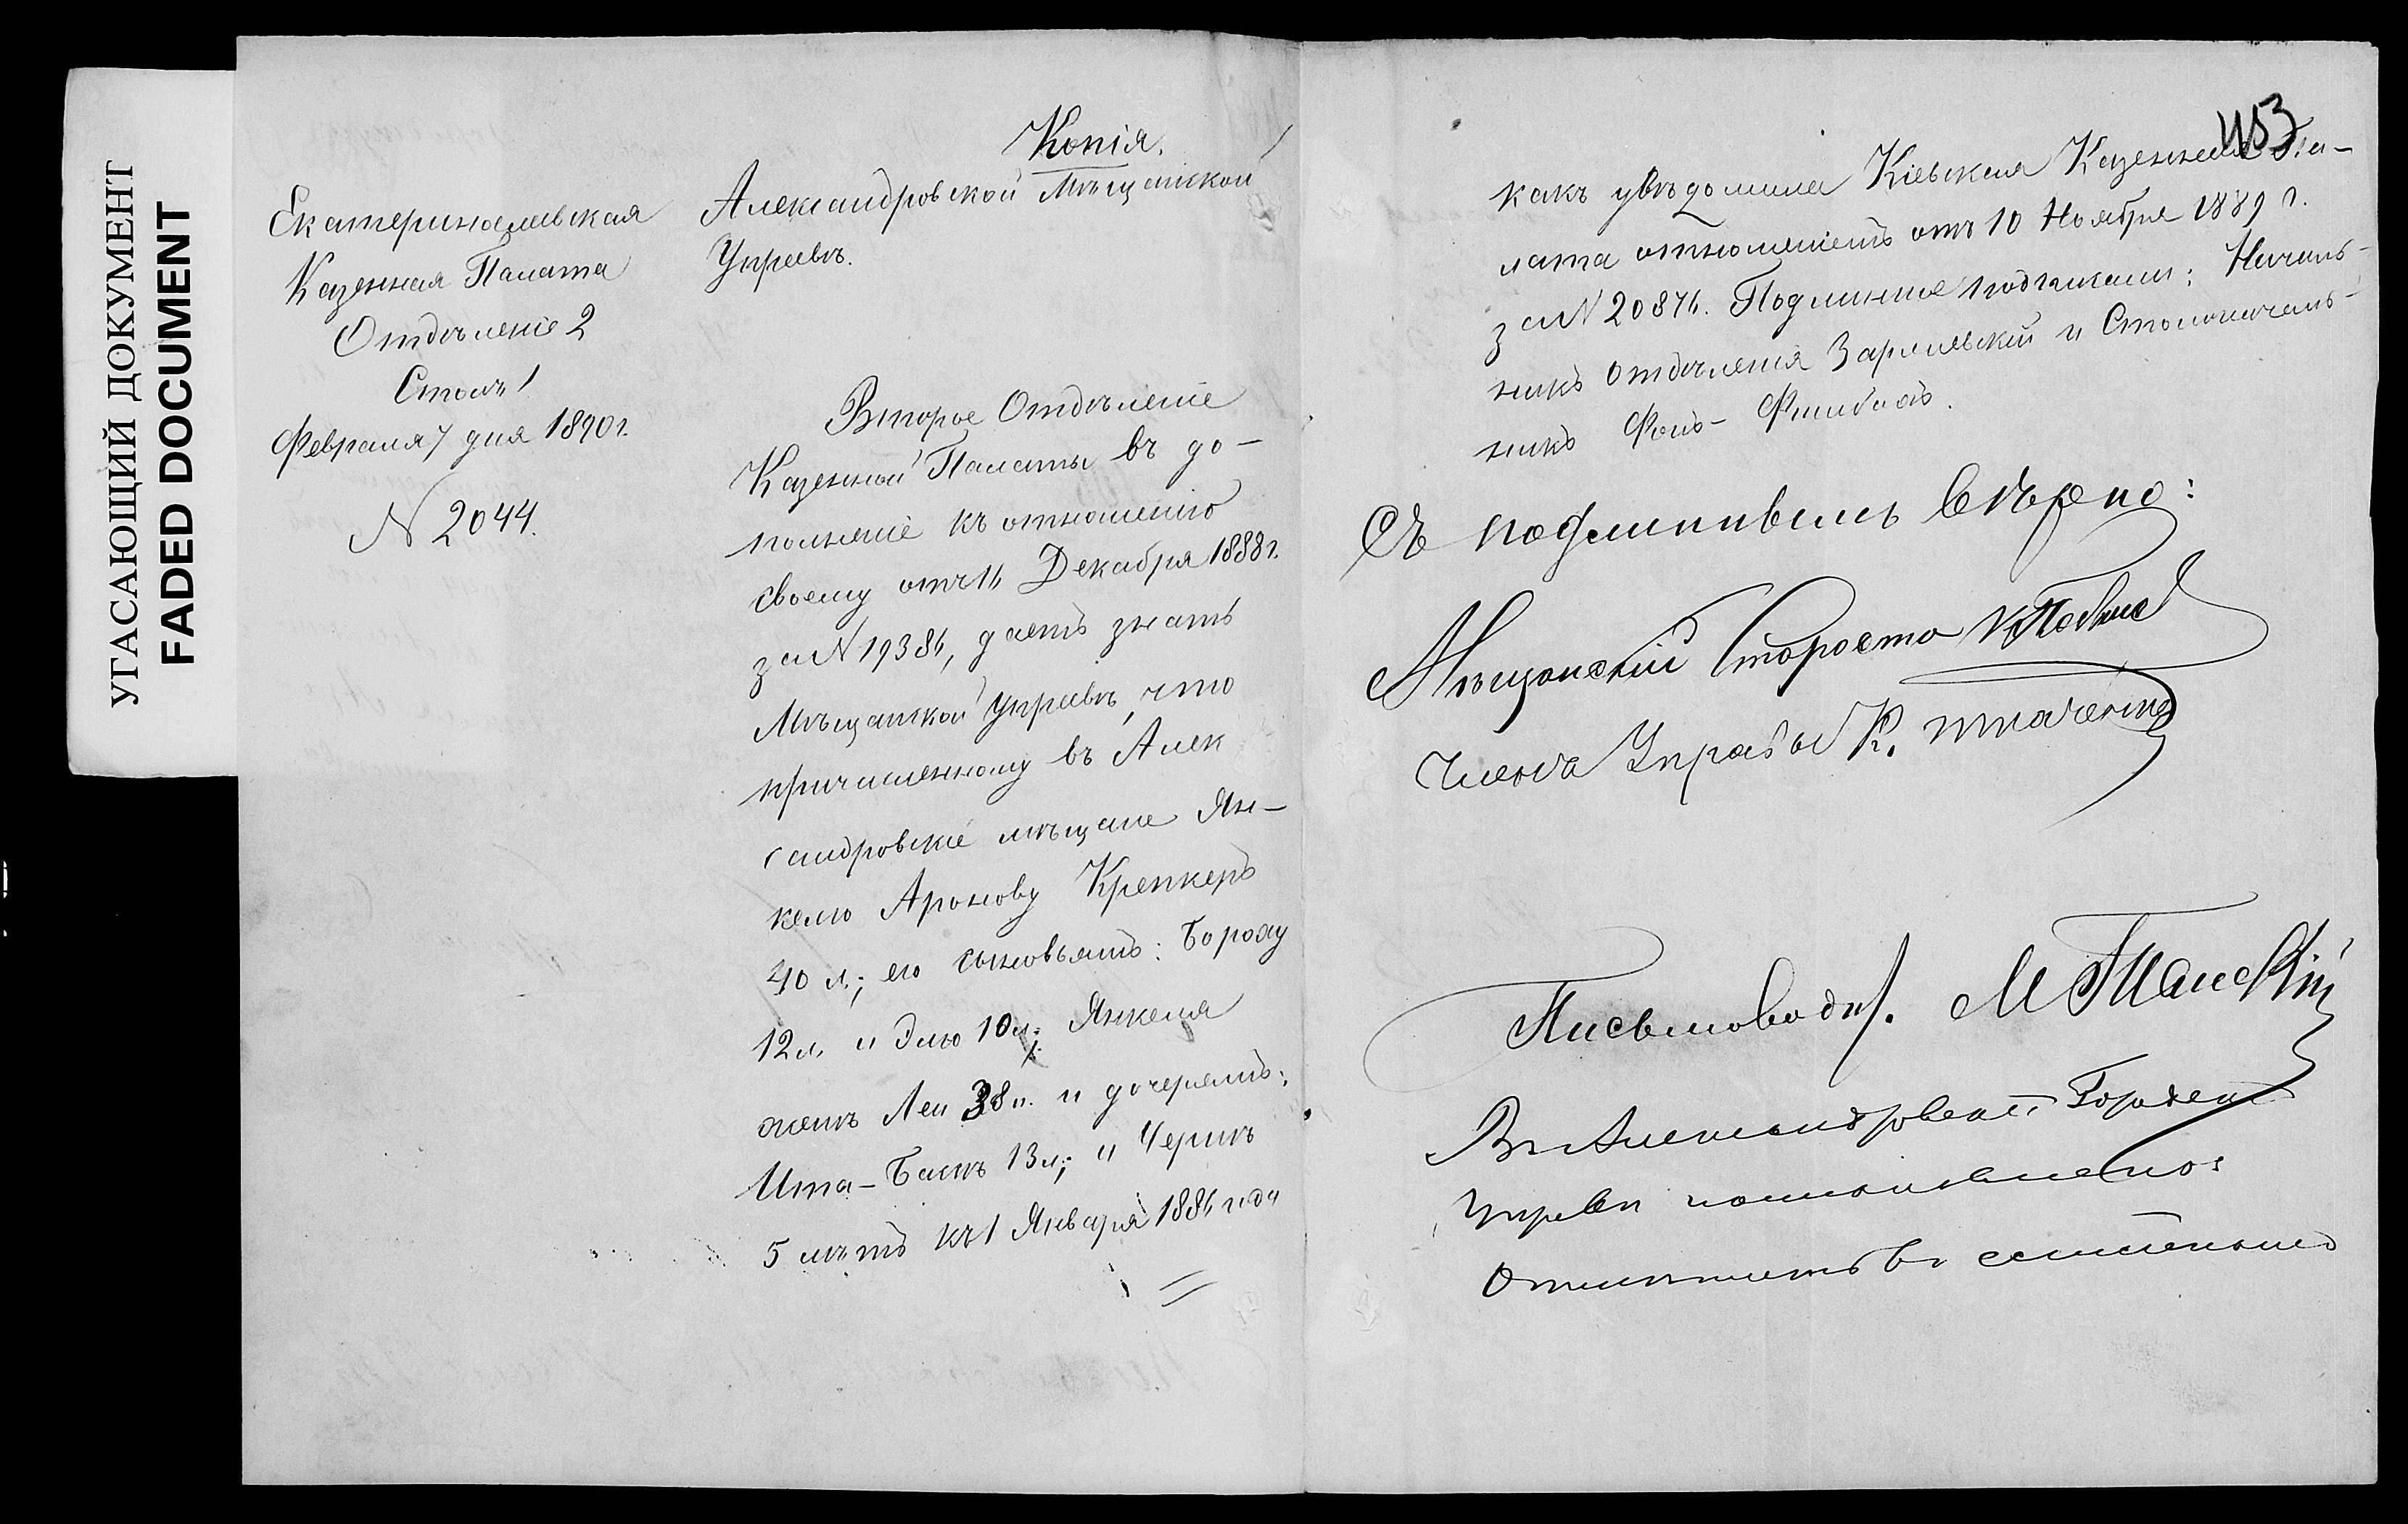 УГАСАЮЩИЙ ДОКУМЕНТ
FADED DOCUMENT
Екатеринославская
Казенная Палата
Отдѣленіе 2
Столъ 1
Февраля 7 дня 1890 г.
N 2044.
Копія.
Александровской Мѣщанской
Управѣ.
Второе Отдѣленіе
Казенной Палаты въ до-
полненіе къ отношенію
своему отъ 16 Декабря 1888 г.
за N 19386, даетъ знать
Мѣщанской Управѣ, что
причисленному въ Алек
сандровскіе мѣщане Ян-
келю Аронову Крепкеръ
40 л.; его сыновьямъ: Бороху
12 л. и Элю 10 л.; Янкеля
женѣ Леи 38 л. и дочерямъ:
Ита-Басѣ 13 л.; и Чернѣ
5 лѣтъ къ 1 Января 1886 года
453
какъ увѣдомила Кіевская Казенная Па-
лата отношеніемъ отъ 10 Ноября 1889 г.
за N 20876. Подлинное подписали: Началь-
никъ Отдѣленія и Столоначаль-
никъ Фонъ-
Съ подлиннымъ вѣрно:
Мѣщанскій Староста
Членъ Управы К. Ткаченко
Письмовод. М
Въ Александровской Городской
Управѣ
въ